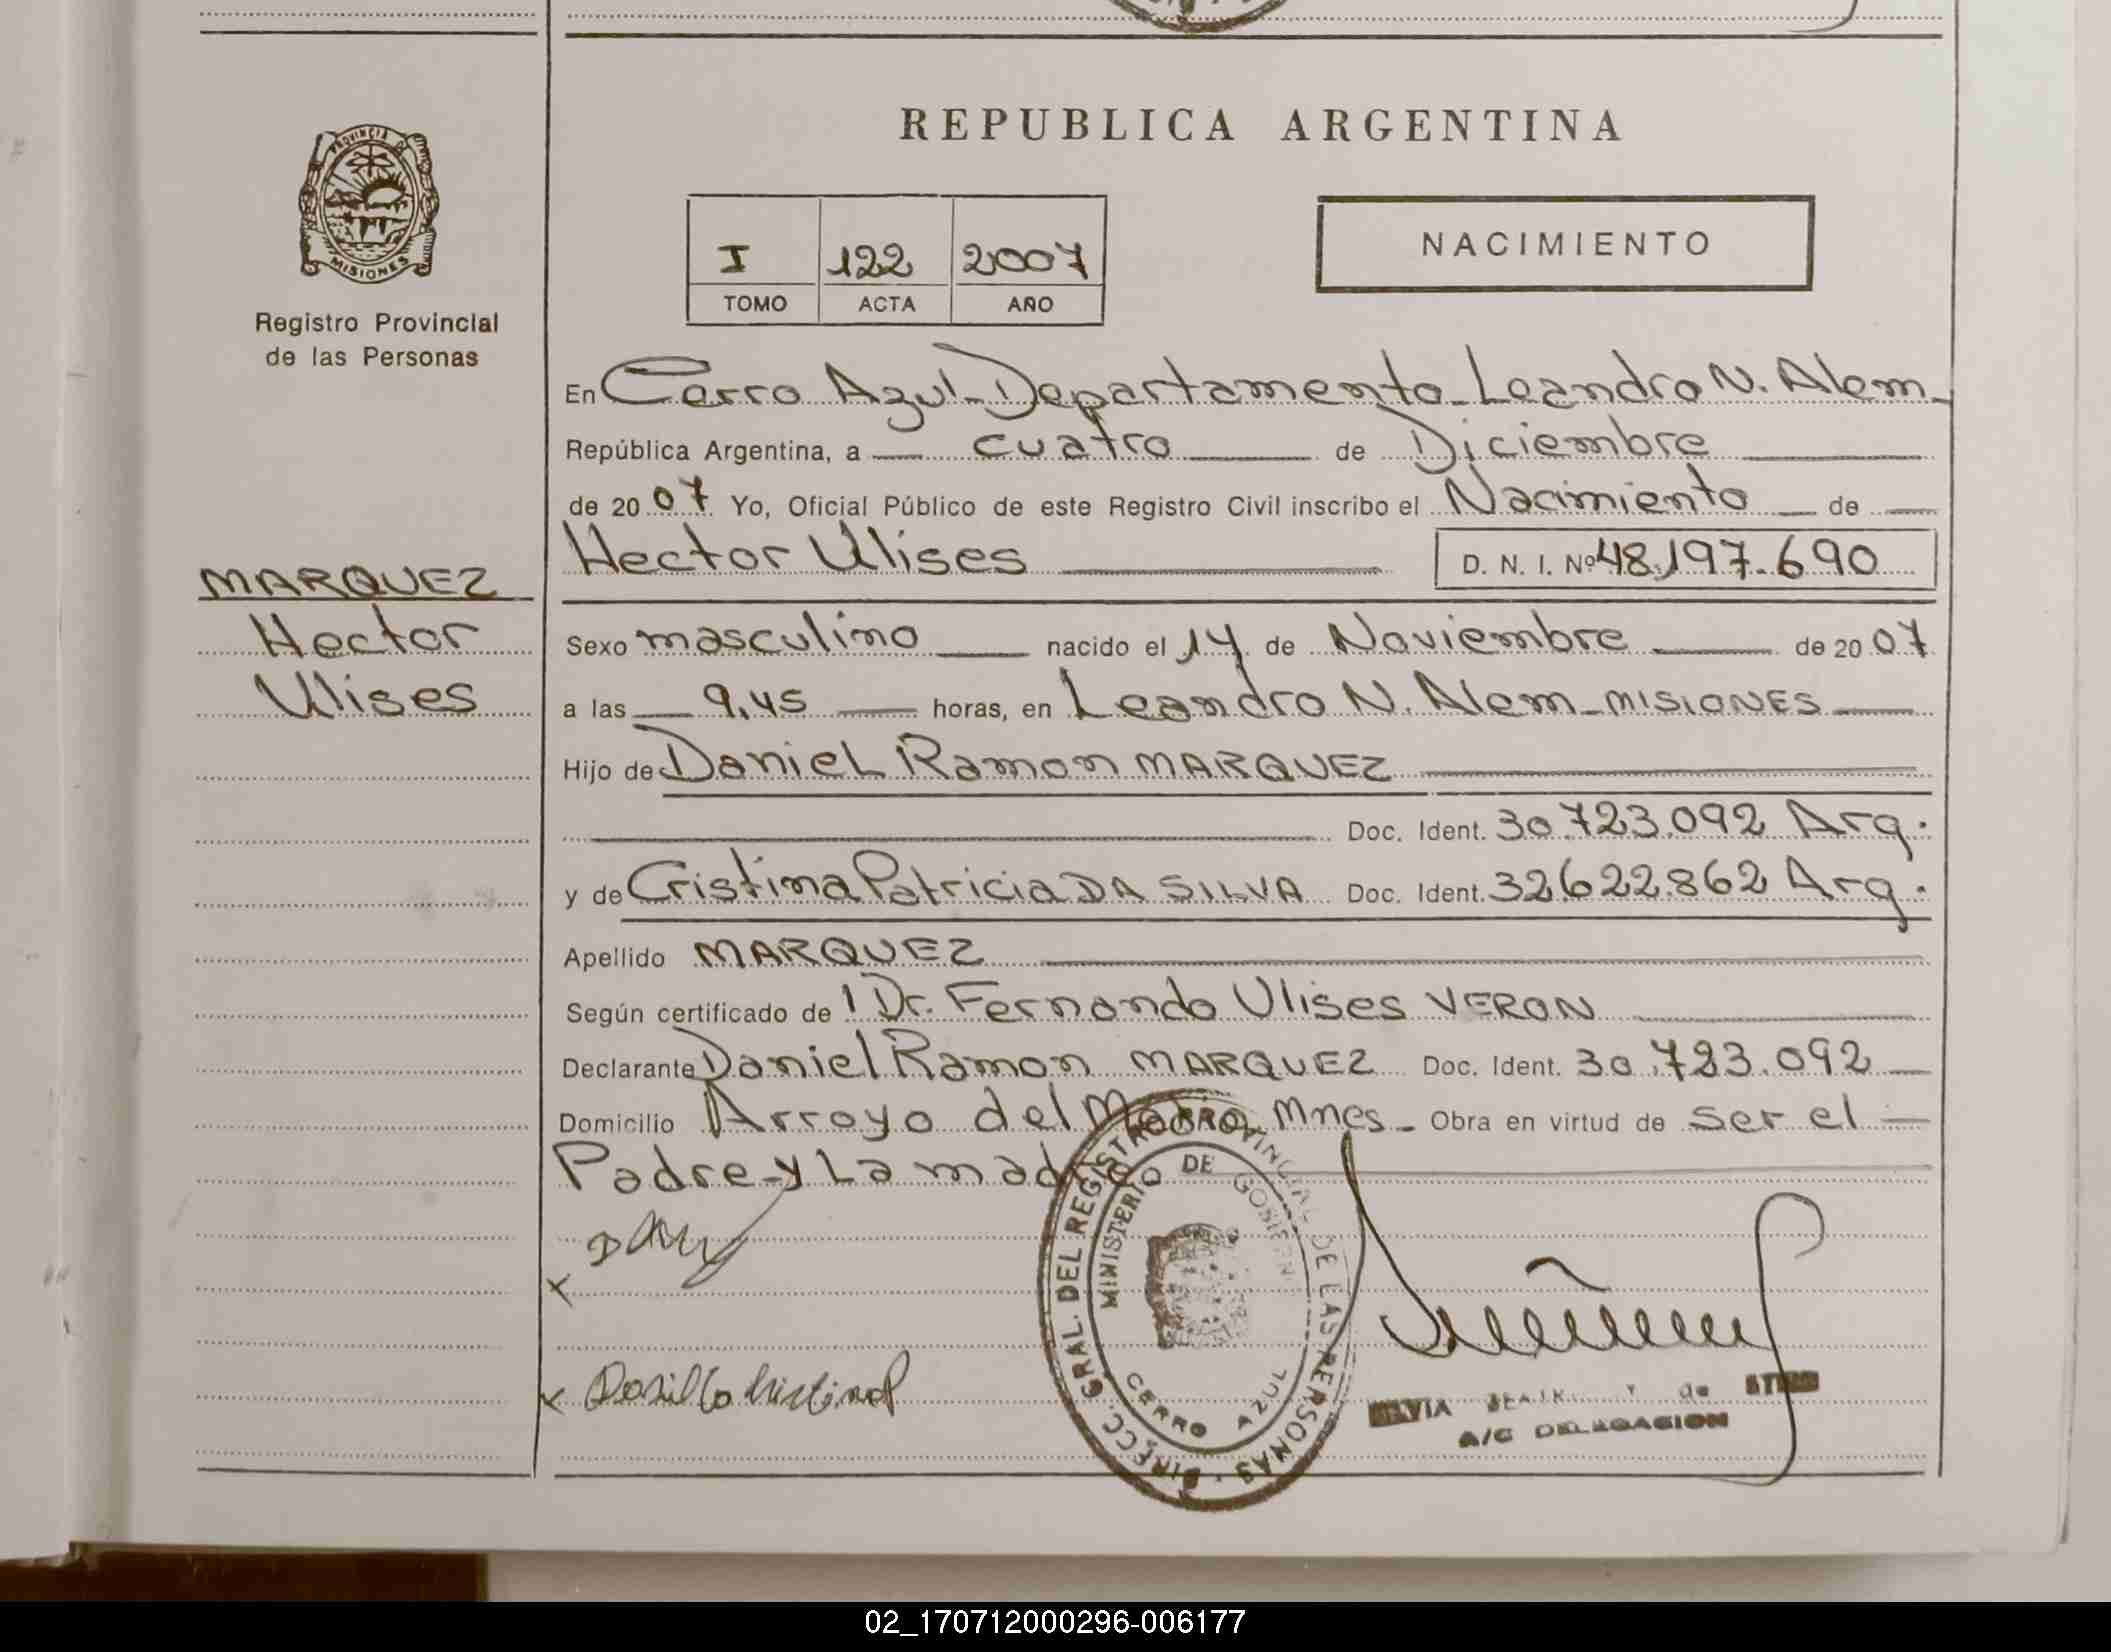 REPUBLICA ARGENTINA
PROVINCIA DE
MISIONES
Registro Provincial
de las Personas
I 122 2007
TOMO ACTA AÑO
NACIMIENTO
En Cerro Azul - Departamento - Leandro N. Alem -
República Argentina, a cuatro de Diciembre
de 2007 Yo, Oficial Público de este Registro Civil inscribo el Nacimiento de
Hector Ulises D. N. I. Nº 48.197.690
MARQUEZ
Hector
Ulises
Sexo masculino nacido el 14 de Noviembre de 2007
a las 9,45 horas, en Leandro N. Alem - MISIONES
Hijo de Daniel Ramon MARQUEZ
Doc. Ident. 30.723.092 Arg.
y de Cristina Patricia DA SILVA Doc. Ident. 32.622.862 Arg.
Apellido MARQUEZ
Según certificado de l Dr. Fernando Ulises VERON
Declarante Daniel Ramon MARQUEZ Doc. Ident. 30.723.092
Domicilio Arroyo del Medio, Mnes - Obra en virtud de ser el
Padre - y La madre
DIRECC. GRAL. DEL REGISTRO PROVINCIAL DE LAS PERSONAS
MINISTERIO DE GOBIERNO
CERRO AZUL
de
A/C DELEGACION
02_170712000296-006177